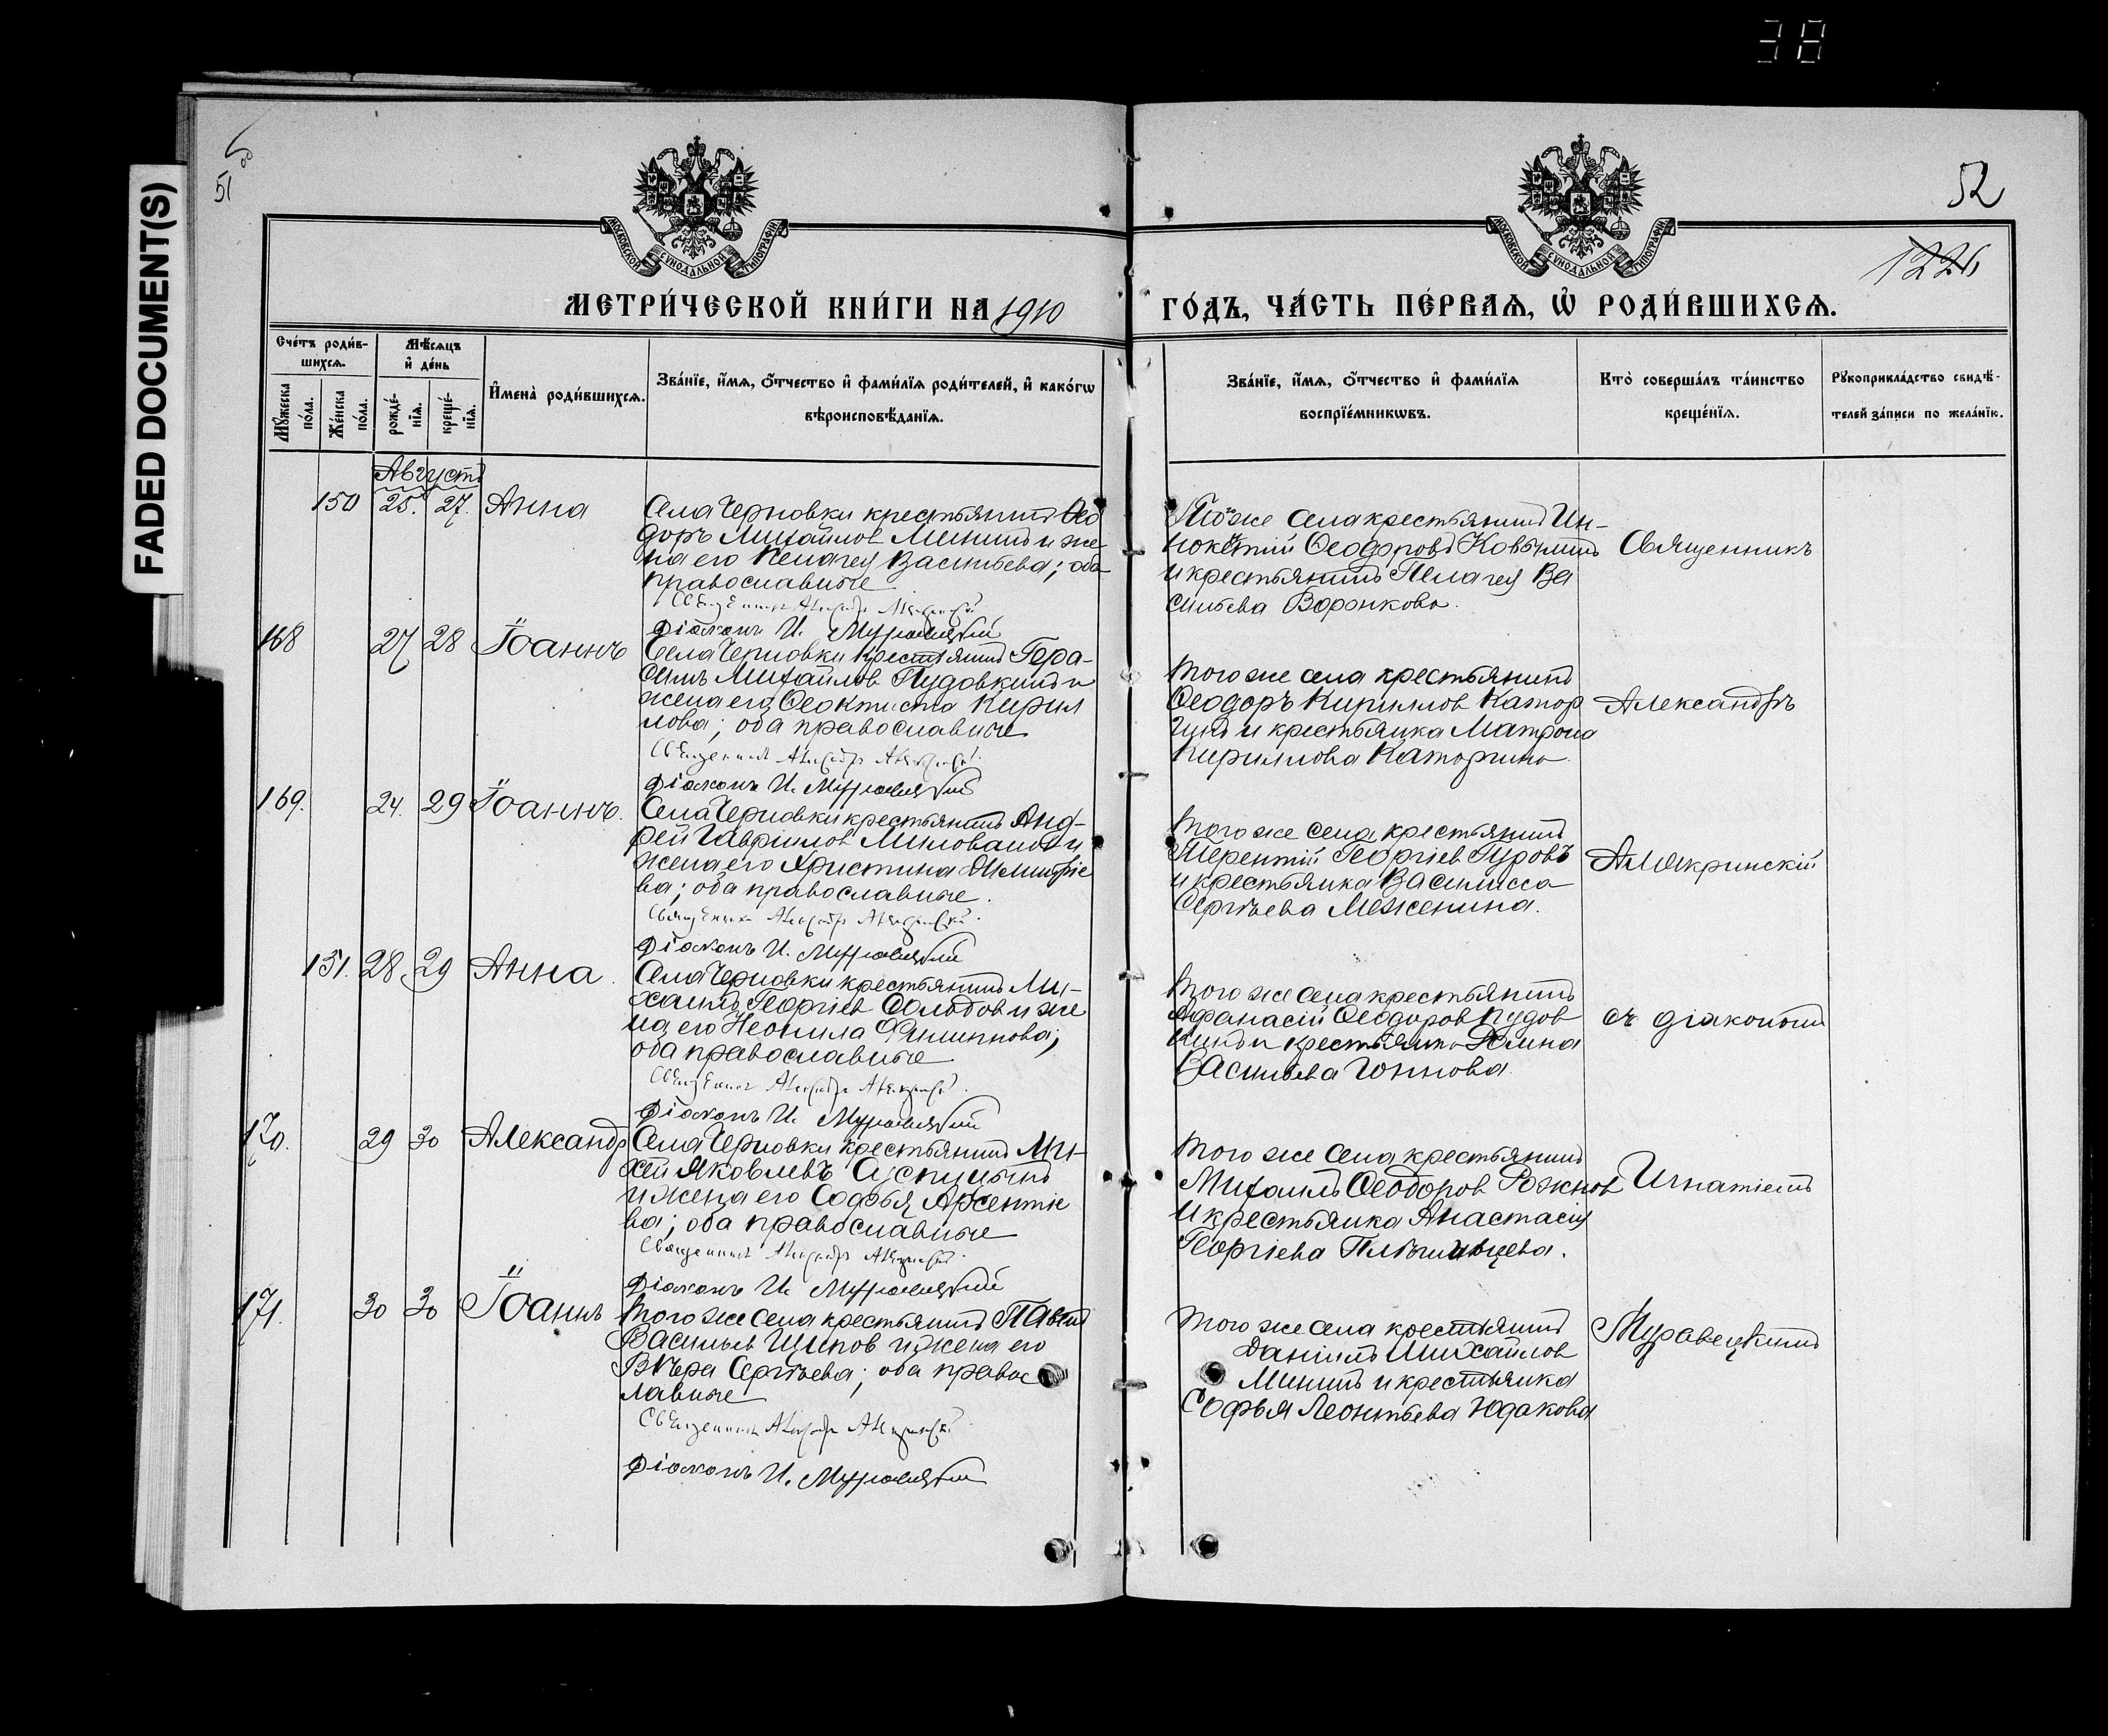 38
FADED DOCUMENT(S)
51
52
1226
МОСКОВСКОЙ СѴНОДАЛЬНОЙ ТИПОГРАФІИ
МОСКОВСКОЙ СѴНОДАЛЬНОЙ ТИПОГРАФІИ
МЕТРИ́ЧЕСКОЙ КНИ́ГИ НА 1910
ГО́ДЪ, ЧА́СТЬ ПЕ́РВАѦ, Ѡ РОДИ́ВШИХСѦ.
Сче́тъ роди́в-
шихсѧ.
Мꙋ́жеска по́ла.
Же́нска по́ла.
Мѣ́сѧцъ
и҆ де́нь
рожде́-
нїѧ.
креще́-
нїѧ.
И҆мена̀ роди́вшихсѧ.
Зва́нїе, и҆́мѧ, о҆́тчество и҆ фами́лїѧ роди́телей, и҆ како́гѡ
вѣроисповѣ́данїѧ.
Зва́нїе, и҆́мѧ, о҆́тчество и҆ фами́лїѧ
воспрїе́мникѡвъ.
Кто̀ соверша́лъ та́инство
креще́нїѧ.
Рꙋкоприкла́дство свидѣ́-
телей за́писи по жела́нїю.
Августъ
150 25. 27. Анна
Села Черновки крестьянинъ Ѳео
доръ Михайлов Мининъ и же
на его Пелагея Васильева; оба
православные
Священникъ Александръ Алякринскій
Діаконъ И. Муравецкій
Того же села крестьянинъ Ин-
нокентій Ѳеодоровъ
и крестьянинъ Пелагея Ва
сильева Воронкова.
Священникъ
168 27 28 Іоаннъ
Села Черновки крестьянинъ Гера-
симъ Михайлов Пудовкинъ и
жена его Ѳеоктиста Кирил
лова; оба православные
Священникъ Александръ Алякринскій
Діаконъ И. Муравецкій
Того же села крестьянинъ
Ѳеодоръ Кириллов Катор
гинъ и крестьянка Матрона
Кириллова Каторгина
Александръ
169. 24. 29 Іоаннъ.
Села Черновки крестьянинъ Анд-
рей Гавриилов Милованов и
жена его Христина Димитріе
ва; оба православные.
Священникъ Александръ Алякринскій
Діаконъ И. Муравецкій
Того же села крестьянинъ
Терентій Георгіев Гуровъ
и крестьянка Василисса
Сергѣева Меженина.
Алякринскій
151. 28 29 Анна.
Села Черновки крестьянинъ Ми-
хаилъ Георгіев Солодов и же
на его Неонила Филиппова;
оба православные
Священникъ Александръ Алякринскій
Діаконъ И. Муравецкій
Того же села крестьянинъ
Афанасій Ѳеодоров Пудов
кинъ и крестьянка
Васильева
съ діакономъ
170. 29 30 Александръ
Села Черновки крестьянинъ Ми-
хей Яковлевъ
и жена его Софья Арсентіе
ва; оба православные
Священникъ Александръ Алякринскій
Діаконъ И. Муравецкій
Того же села крестьянинъ
Михаилъ Ѳеодоров Рожнов
и крестьянка Анастасія
Георгіева
Игнатіемъ
171. 30 30 Іоаннъ
Того же села крестьянинъ Павелъ
Васильев Щипов и жена его
Вѣра Сергѣева; оба правос
лавные
Священникъ Александръ Алякринскій
Діаконъ И. Муравецкій
Того же села крестьянинъ
Даніилъ Михайлов
Мининъ и крестьянка
Софья Леонтьева Юдакова
Муравецкимъ